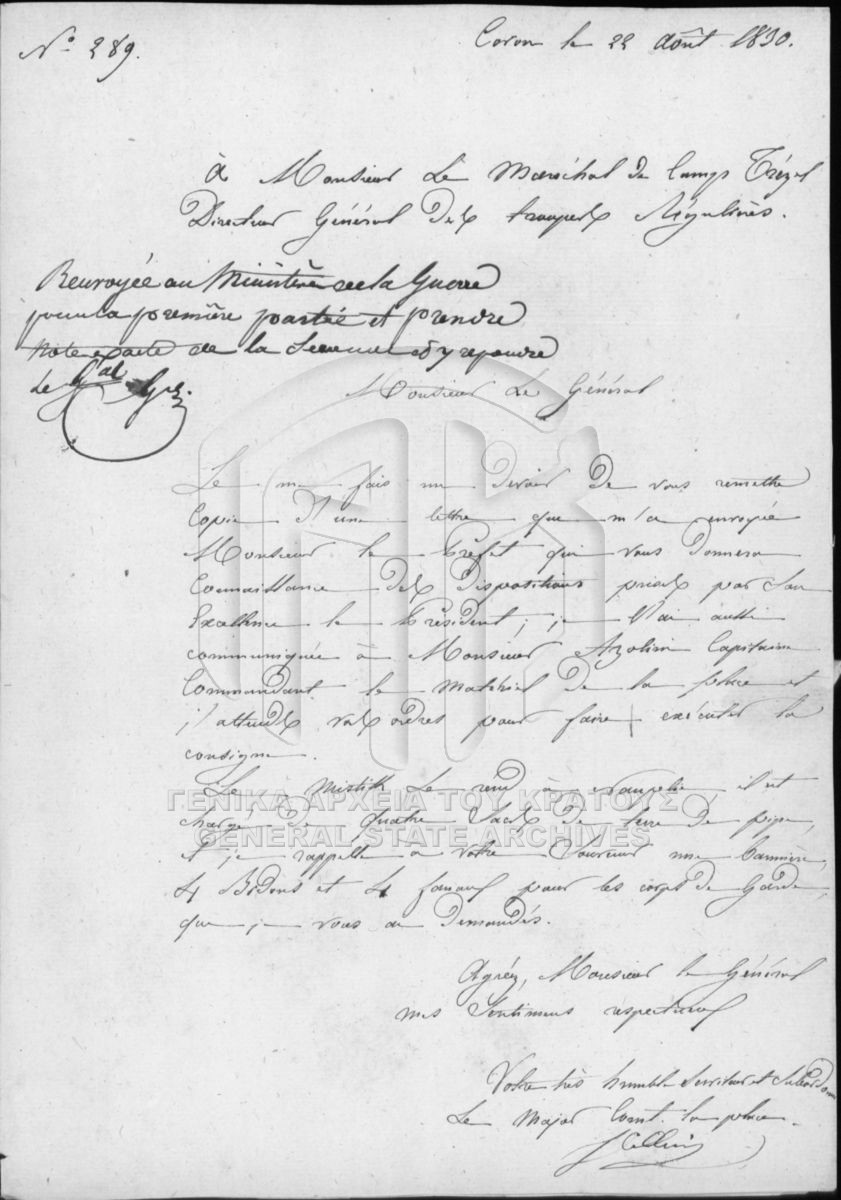 N.º 289.
Coron le 22 Août 1830.
à Monsieur Le Maréchal de Camp Trézel
Directeur Général des troupes Régulières.
Renvoyée au Ministère de la Guerre
pour la première partie et prendre
note exacte de la Seconde et y repondre
le Gal
Monsieur Le Général
Je me fais un devoir de vous remettre
Copie d'une lettre que m'a envoyée
Monsieur le Préfet qui vous donnera
Connaissance des dispositions prises par Son
Excellence le Président; je l'ai aussi
communiquée à Monsieur Azolini Capitaine
Commandant le matériel de la place et
j'attends vos ordres pour faire exécuter la
consigne.
Le Mistik Se rend à Nauplie, il est
chargé de quatre Sacs de terre de pipe,
et je rappelle à votre Souvenir une bannière,
4 Bidons et 4 fanaux pour les corps de Garde,
que je vous ai demandés.
ΓΕΝΙΚΑ ΑΡΧΕΙΑ ΤΟΥ ΚΡΑΤΟΥΣ
GENERAL STATE ARCHIVES
Agréez, Monsieur le Général
mes Sentimens respectueux
Votre très humble Serviteur et Subordonné
Le Major Comt. la place.